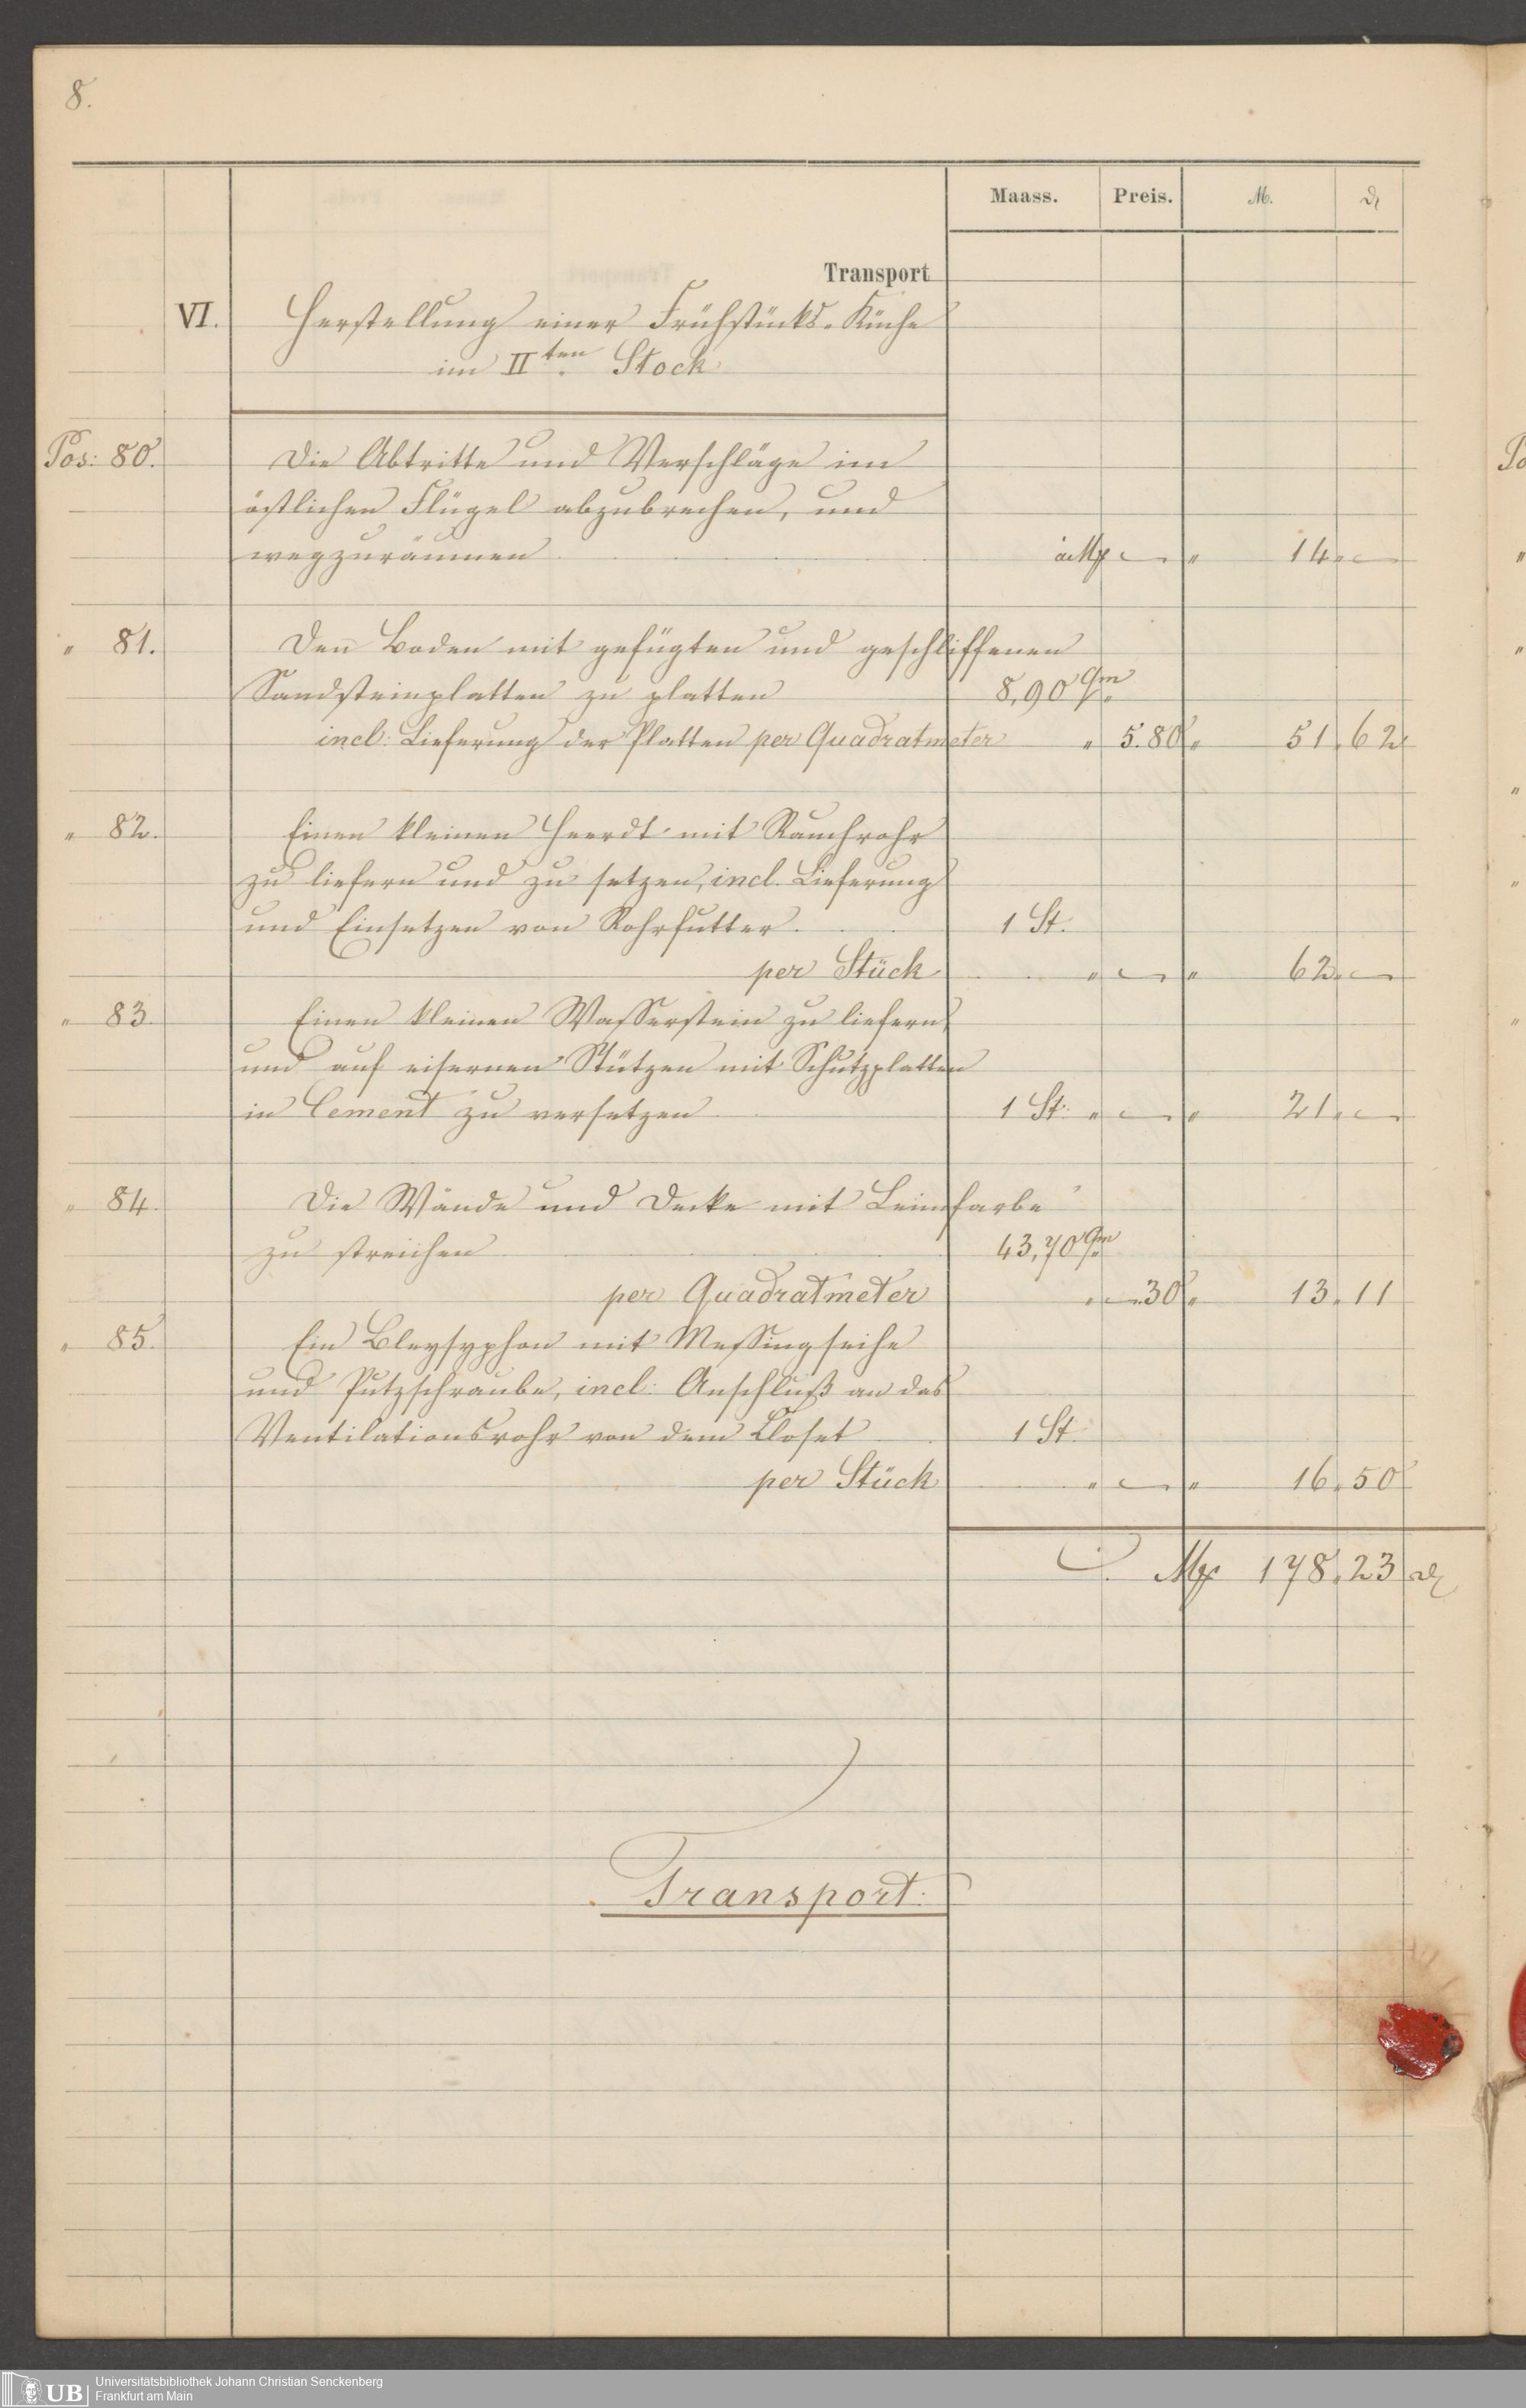 8.
Maass. Preis. M. ₰
Transport
VI. Herstellung einer Frühstücks-Küche
im IIten Stock
Pos: 80. Die Abtritte und Verschläge im
östlichen Flügel abzubrechen, und
wegzuräumen à M — " 14 " —
" 81. Den Boden mit gefügten und geschliffenen
Sandsteinplatten zu platten 8,90 qm
incl: Lieferung der Platten per Quadratmeter " 5.80 " 51 " 62
" 82. Einen kleinen Heerdt mit Rauchrohr
zu liefern und zu setzen, incl. Lieferung
und Einsetzen von Rohrfutter 1 St.
per Stück " — " 62 " —
" 83. Einen kleinen Wasserstein zu liefern
und auf eisernen Stützen mit Schutzplatten
in Cement zu versetzen 1 St: " — " 21 " —
" 84. Die Wände und Decke mit Leimfarbe
zu streichen 43,70 qm
per Quadratmeter " —.30 " 13 " 11
" 85. Ein Bleysyphon mit Messingseihe
und Putzschraube, incl: Anschluß an das
Ventilationsrohr von dem Closet 1 St.
per Stück " — " 16 " 50
M 178 " 23 ₰
Transport:
UB Universitätsbibliothek Johann Christian Senckenberg
Frankfurt am Main